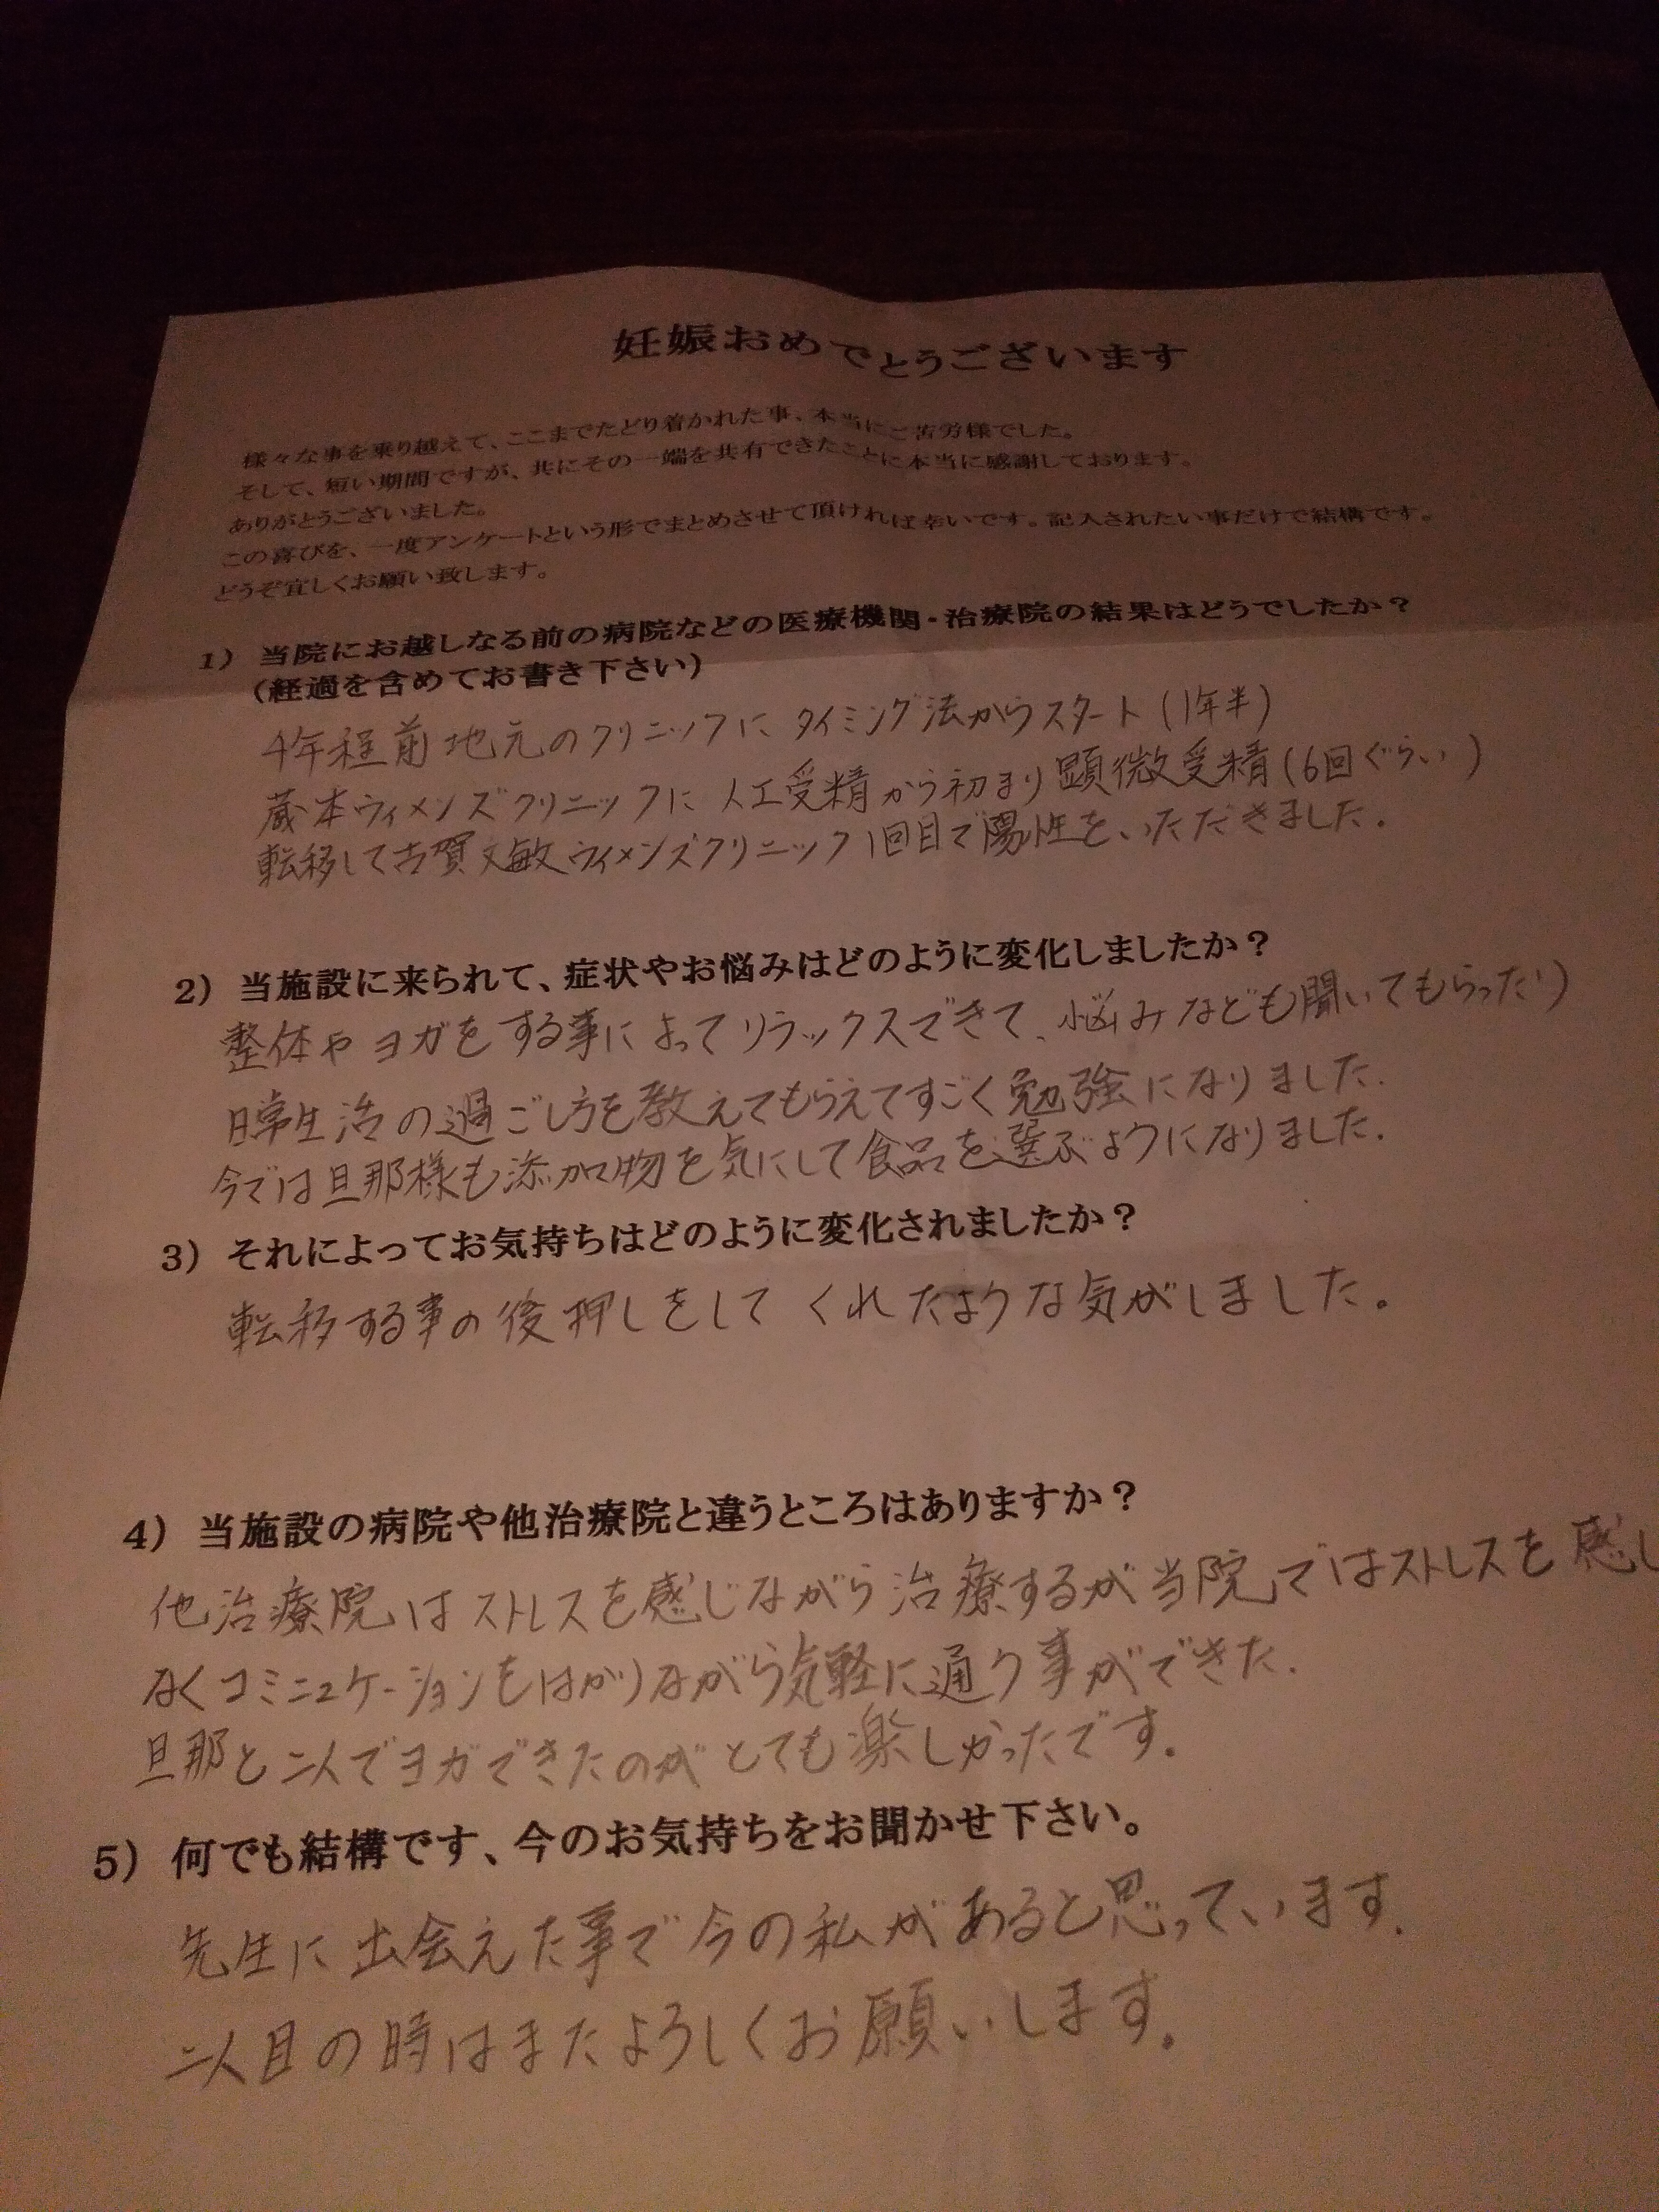 妊娠おめでとうございます
様々な事を乗り越えて、ここまでたどり着かれた事、本当にご苦労様でした。
そして、短い期間ですが、共にその一端を共有できたことに本当に感謝しております。
ありがとうございました。
この喜びを、一度アンケートという形でまとめさせて頂ければ幸いです。記入されたい事だけで結構です。
どうぞ宜しくお願い致します。
1） 当院にお越しなる前の病院などの医療機関・治療院の結果はどうでしたか？
（経過を含めてお書き下さい）
4年程前地元のクリニックに タイミング法からスタート (1年半)
蔵本ウィメンズクリニックに 人工受精から初まり顕微受精(6回ぐらい)
転移して古賀文敏ウィメンズクリニック1回目で陽性をいただきました.
2） 当施設に来られて、症状やお悩みはどのように変化しましたか？
整体やヨガをする事によってリラックスできて、悩みなども聞いてもらったり
日常生活の過ごし方を教えてもらえてすごく勉強になりました.
今では旦那様も添加物を気にして食品を選ぶようになりました.
3） それによってお気持ちはどのように変化されましたか？
転移する事の後押しをして くれたような気がしました。
4） 当施設の病院や他治療院と違うところはありますか？
他治療院はストレスを感じながら治療するが当院ではストレスを感じ
なくコミニュケーションもはかりながら気軽に通う事ができた.
旦那と二人でヨガできたのがとても楽しかったです。
5） 何でも結構です、今のお気持ちをお聞かせ下さい。
先生に出会えた事で今の私があると思っています.
二人目の時はまたよろしくお願いします。